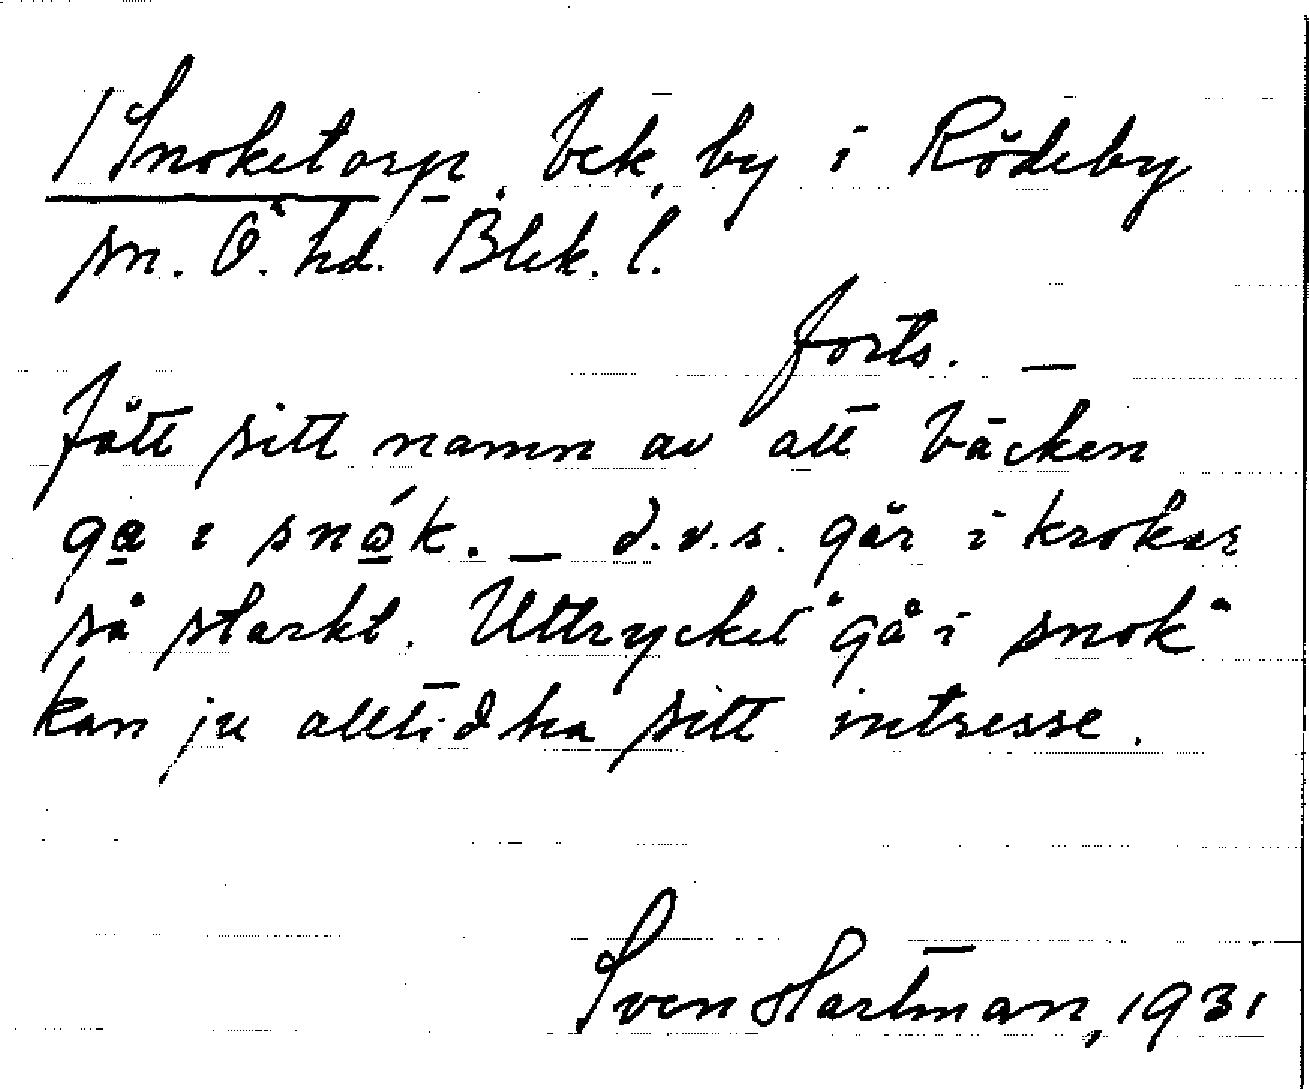 /Snoketorp. bek, by i Rödeby
sn. Ö. hd. Blek. l.
forts. —
fått sitt namn av att bäcken
ga i snók. — d.v.s. går i krokar
så starkt. Uttrycket "gå i snok"
kan ju alltid ha sitt intresse.
Sven Hartman, 1931